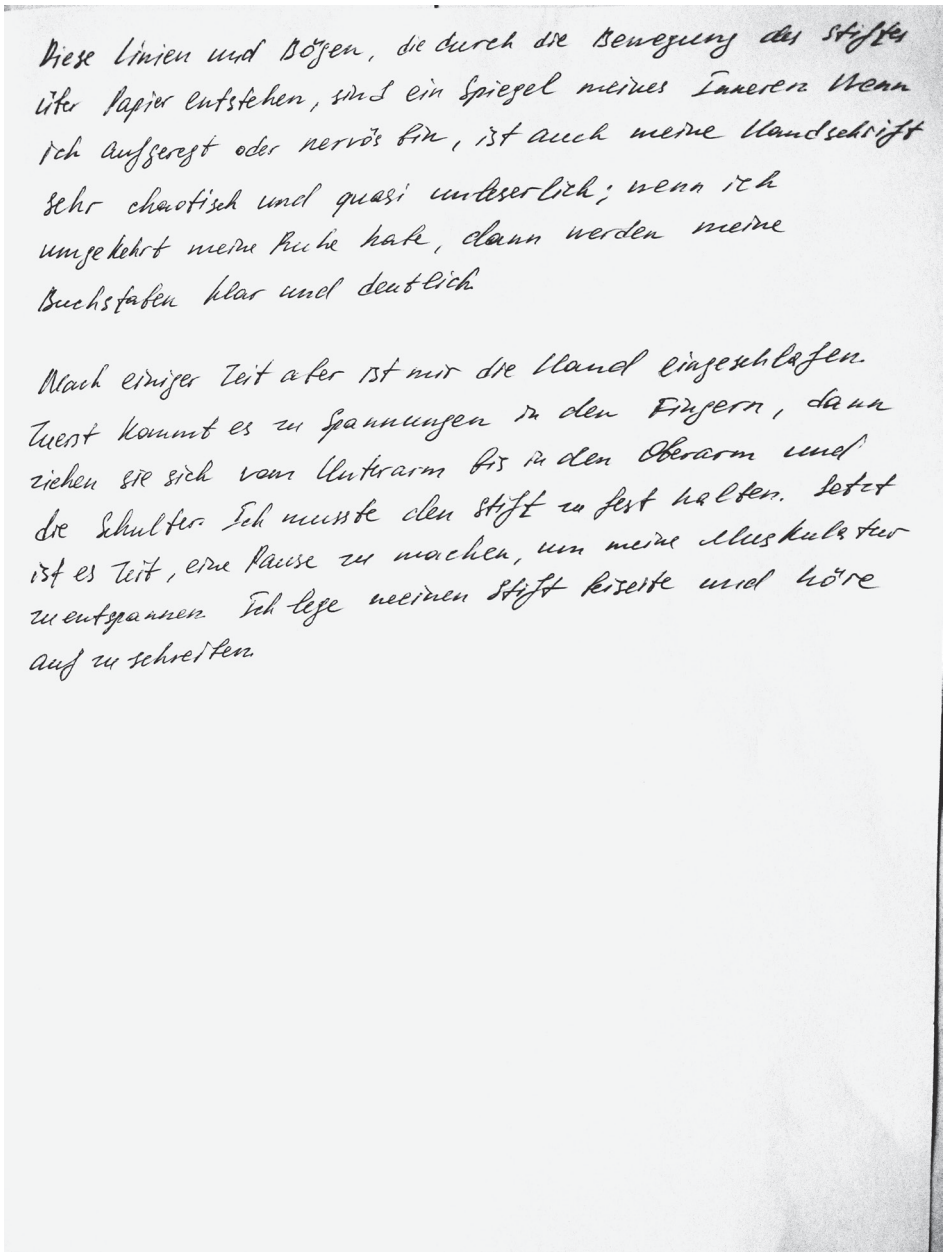 Diese Linien und Bögen, die durch die Bewegung des Stiftes
über Papier entstehen, sind ein Spiegel meines Inneren. Wenn
ich aufgeregt oder nervös bin, ist auch meine Handschrift
sehr chaotisch und quasi unleserlich; wenn ich
umgekehrt meine Ruhe habe, dann werden meine
Buchstaben klar und deutlich.
Nach einiger Zeit aber ist mir die Hand eingeschlafen.
Zuerst kommt es zu Spannungen in den Fingern, dann
ziehen sie sich vom Unterarm bis in den Oberarm und
die Schulter. Ich musste den Stift zu fest halten. Jetzt
ist es Zeit, eine Pause zu machen, um meine Muskulatur
zu entspannen. Ich lege meinen Stift beiseite und höre
auf zu schreiben.